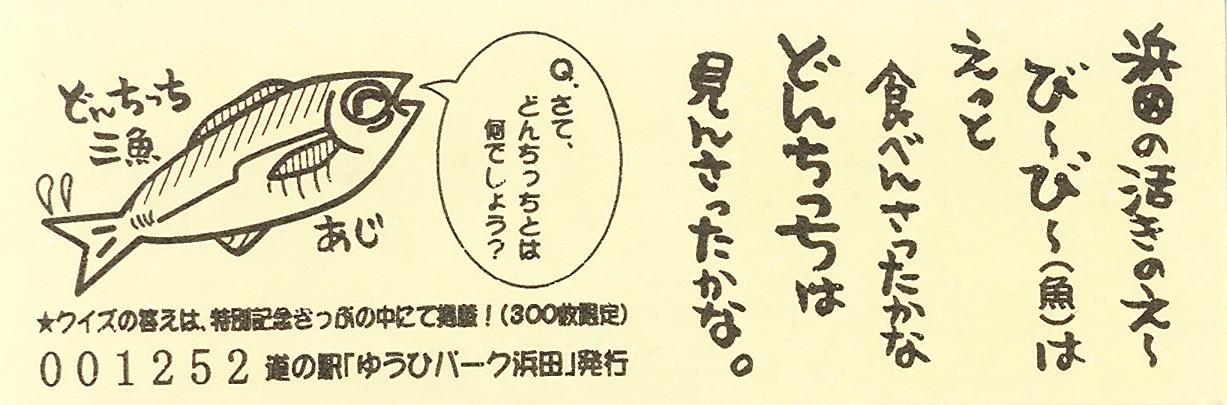 浜田の活きのえ〜
び〜び〜(魚)は
えっと
食べんさったかな
どんちっちは
見んさったかな。
Q.さて、
どんちっちとは
何でしょう?
どんちっち
三魚
あじ
★クイズの答えは、特別記念きっぷの中にて掲載!(300枚限定)
001252 道の駅「ゆうひパーク浜田」発行